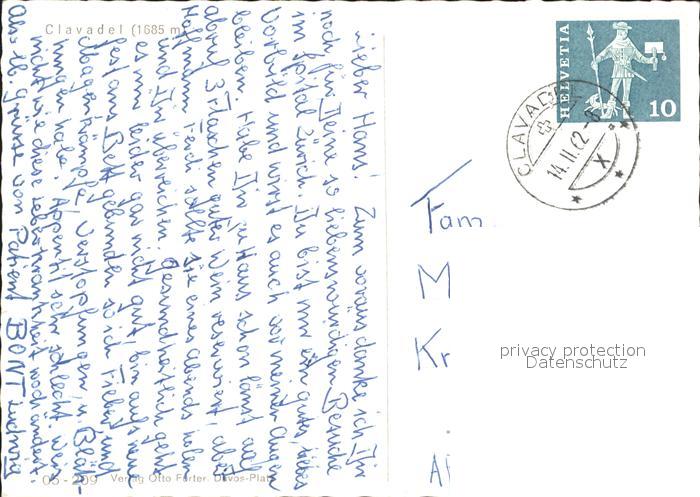 Clavadel (1685 m)
Lieber Hans! Zum voraus danke ich Dir
noch für Deine so liebenswürdigen Besuche
im Spital Zürich. Du bist mir ein gutes, liebes
Vorbild und wirst es auch
bleiben. Habe Dir zu Haus schon längst auf
3 Flaschen guter Wein reserviert, aber
Hoffmann sollte sie eines abends holen
und Dir überreichen. Gesundheitlich geht
es mir leider gar nicht gut, bin aufs neue
fest ans Bett gebunden so ich Fieber und
Magenkrämpfe, Verstopfungen, u. Bläh-
ungen habe. Appentit sehr schlecht. Wenn
nicht wie diese Leberkrankheit noch ändert.
Also Dich grüsst von Patient BONT Ludwig
05 - 209 Verlag Otto Furter, Davos-Platz
HELVETIA
10
CLAVADEL
14.II.62-8
X
Fam
M
Kr
A
privacy protection
Datenschutz